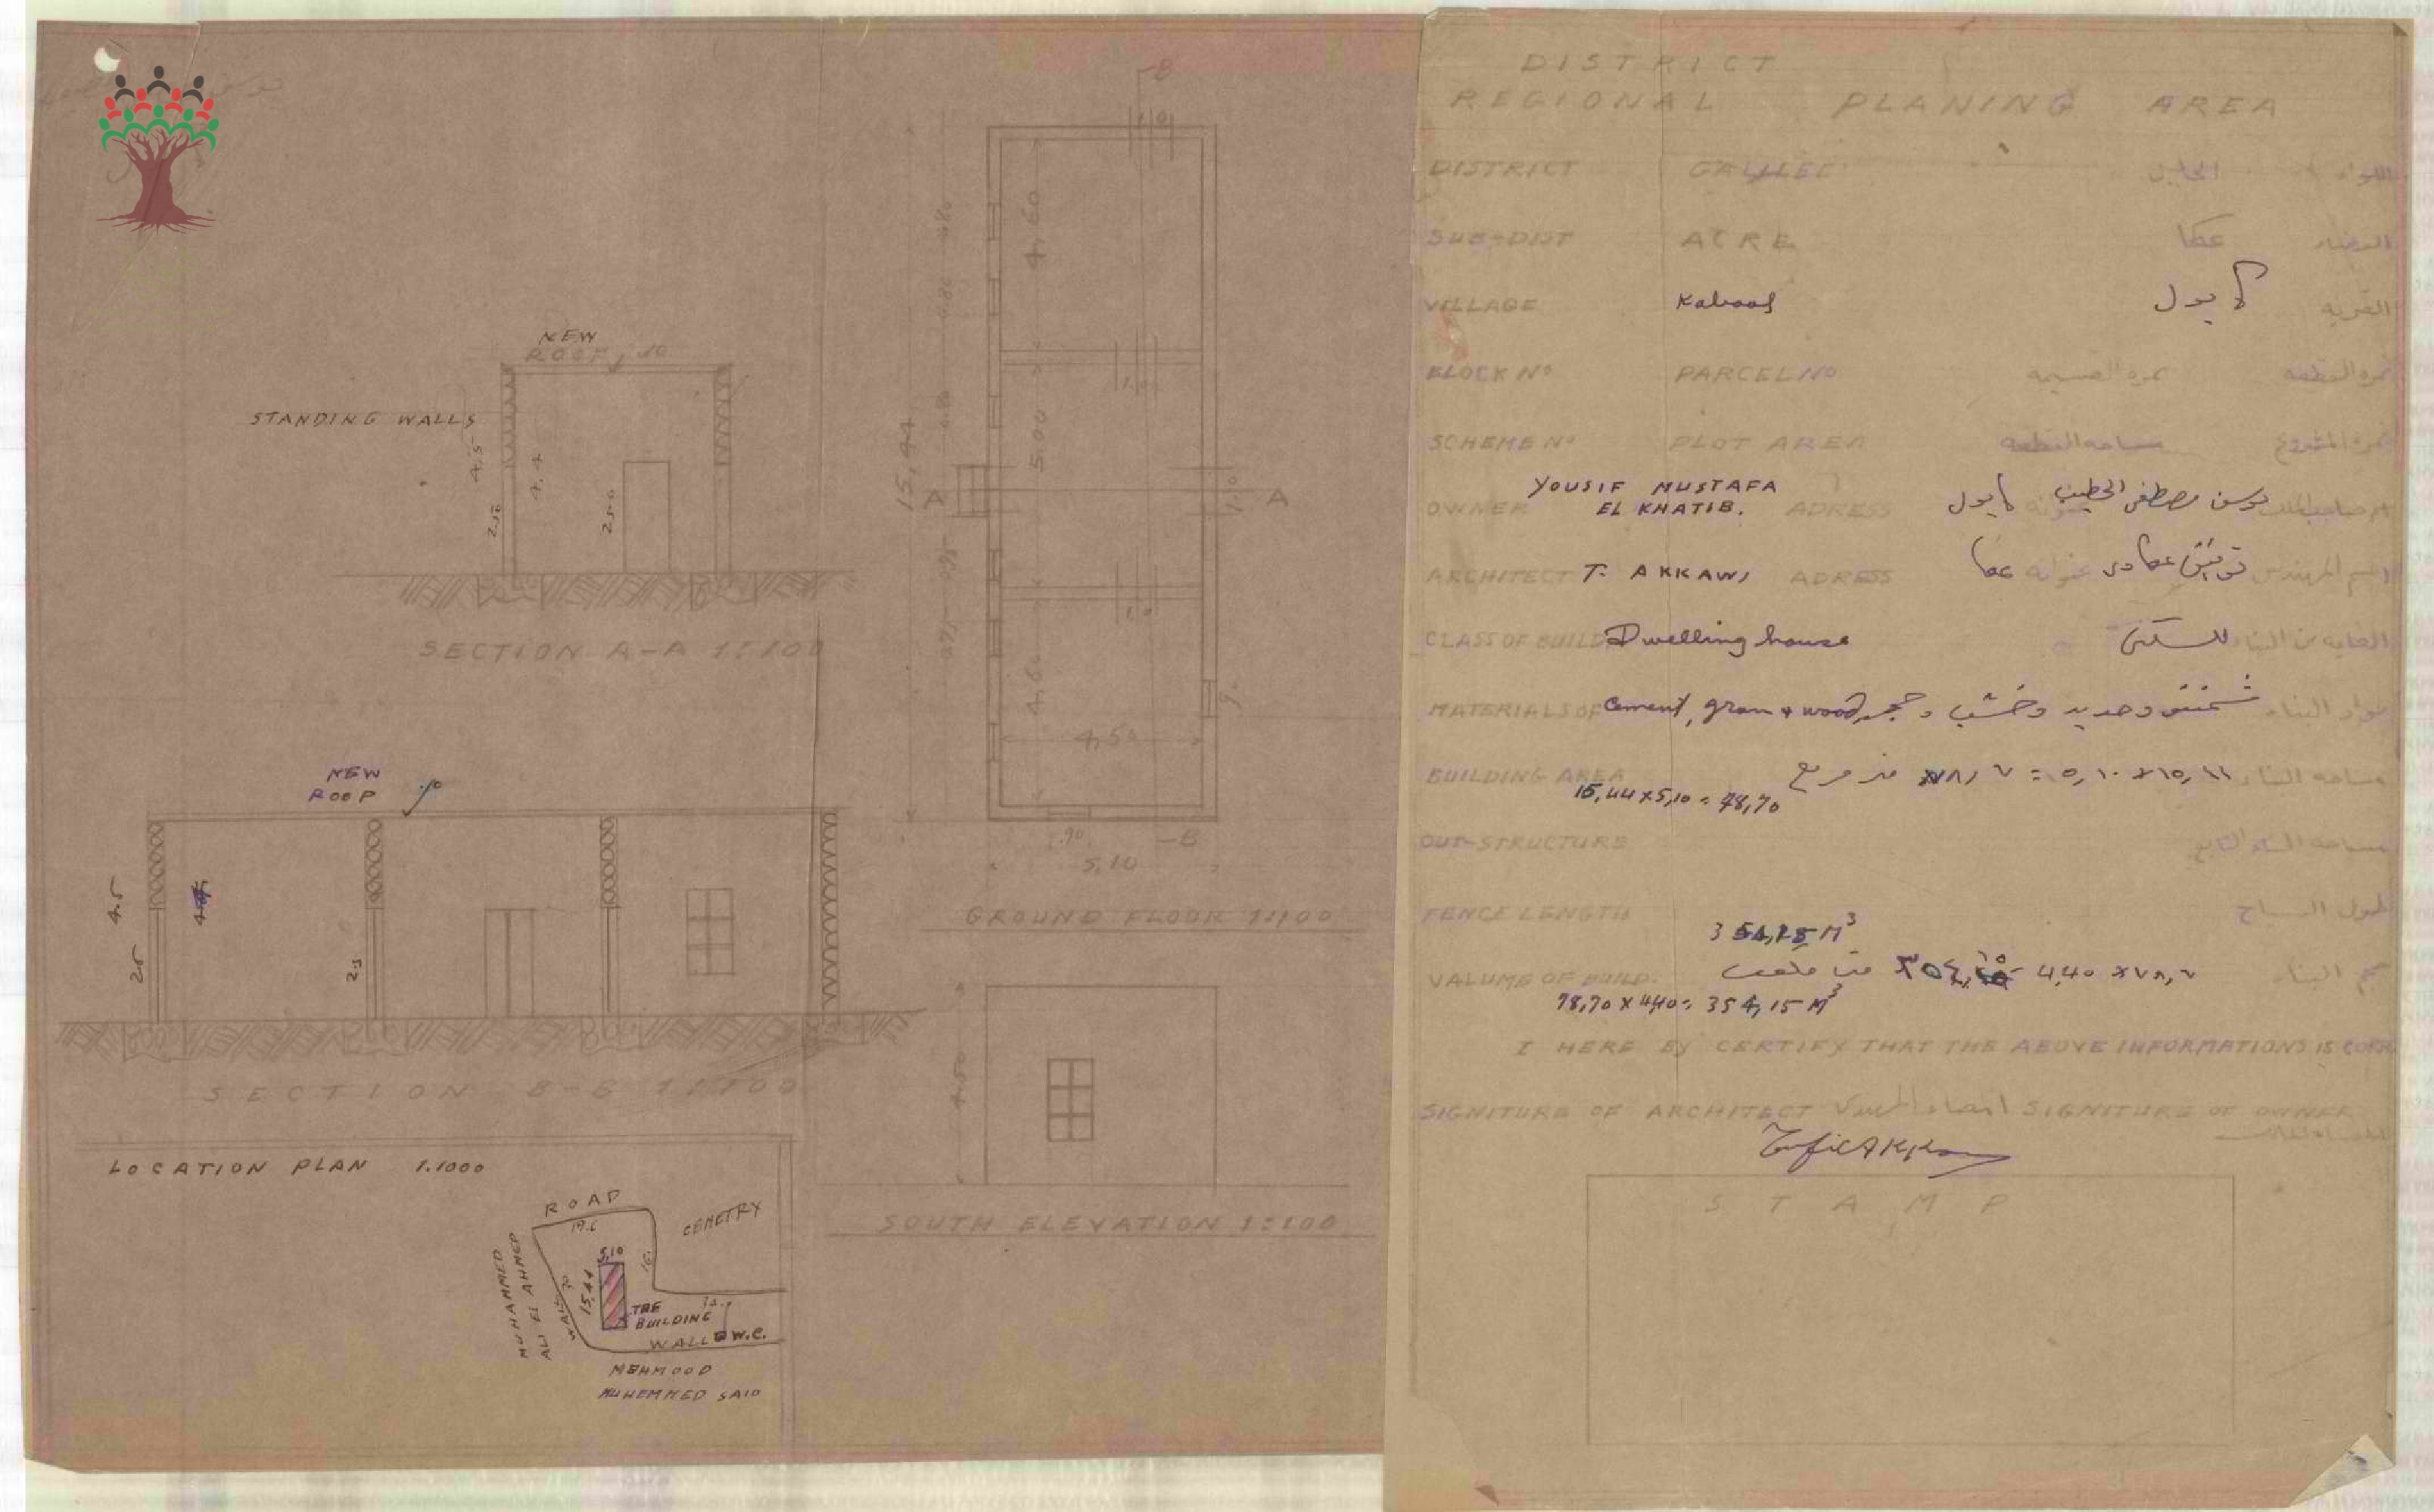 NEW
ROOF .10
STANDING WALLS
4.5
4.4
2.50
2.50
SECTION A-A 1:100
NEW
ROOF .10
4.5
2.5
2.5
SECTION B-B 1:100
B
1.0
4,60
4.80
4.80
4.80
15,44
5.00
1.0
A
1.0
A
1.0
4.60
4,50
.90
B
5,10
GROUND FLOOR 1:100
4.50
SOUTH ELEVATION 1:100
LOCATION PLAN 1.1000
ROAD
19.6
CEMETRY
MUHAMMED
ALI EL AHMED
WALL
5,10
15,44
16.
THE
BUILDING
WALL W.C.
MEHMOOD
MUHEMMED SAID
DISTRICT
REGIONAL PLANING AREA
DISTRICT GALILEE الجليل اللواء
SUB-DIST ACRE عكا القضاء
VILLAGE Kabool كابول القريه
BLOCK No PARCEL No نمره القسيمه نمره القطعه
SCHEME No PLOT AREA مساحه القطعه نمره المشروع
OWNER YOUSIF MUSTAFA
EL KHATIB. ADRESS كابول عنوانه يوسف مصطفى الخطيب اسم صاحب الملك
ARCHITECT T. AKKAWI ADRESS عكا عنوانه توفيق عكاوي اسم المهندس
CLASS OF BUILD Dwelling house للسكن الغايه من البناء
MATERIALS OF Cement, Iron & wood شمنتو وحديد وخشب وحجر مواد البناء
BUILDING AREA ١٥,٤٤ × ٥,١٠ = ٧٨,٧ متر مربع مساحه البناء
15,44 x 5,10 = 78,70
OUT-STRUCTURE مساحه البناء التابع
FENCE LENGTH طول السياج
354,15 M³
VALUME OF BUILD. متر مكعب ٣٥٤,١٥ = 4,40 × ٧٨,٧ حجم البناء
78,70 x 4,40 = 354,15 M³
I HERE BY CERTIFY THAT THE ABOVE INFORMATIONS IS
SIGNITURE OF ARCHITECT امضاء المهندس SIGNITURE OF OWNER
Tawfic Akkawi
STAMP